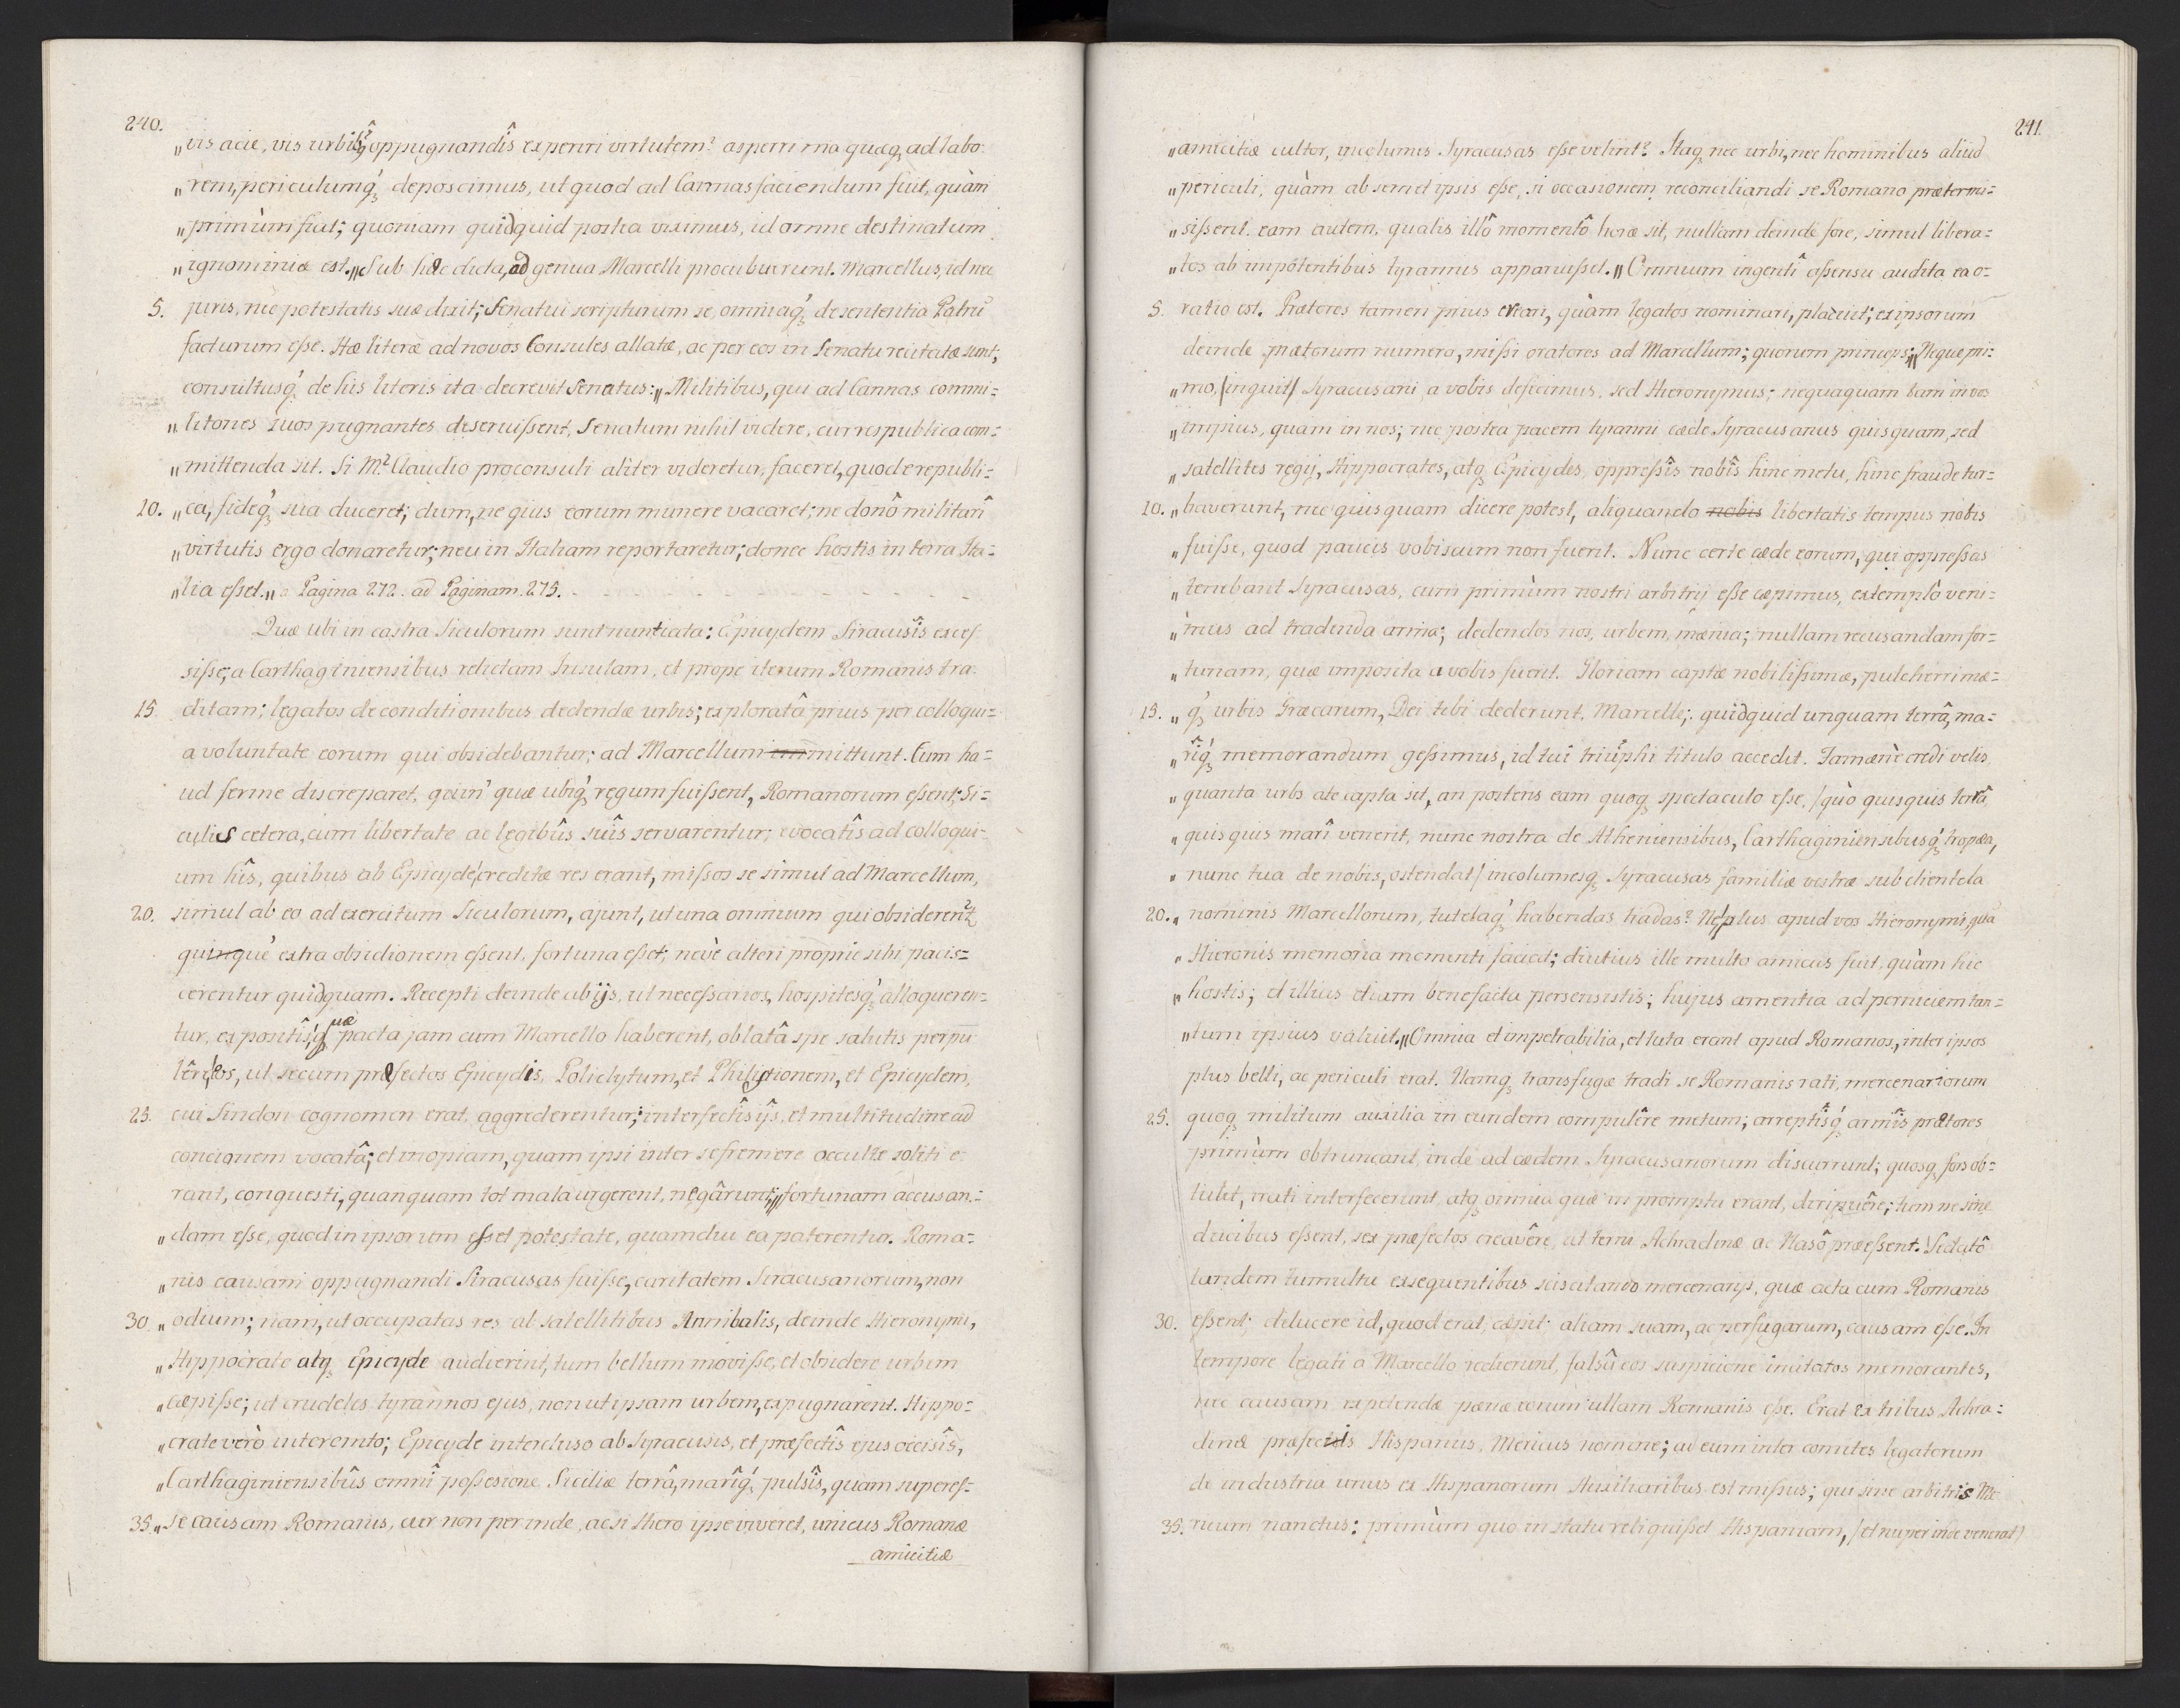 240.
„vis acie, vis urbibꝫ oppugnandîs experiri virtutem? asperrima quæqꝫ ad labo-
„rem, periculumqꝫ deposcimus, ut quod ad Cannas faciendum fuit, quàm
„primùm fiat; quoniam quidquid postea viximus, id omne destinatum
„ignominiæ est.„ Sub hæc dicta, ad genua Marcelli procubuerunt. Marcellus, id nec
5. juris, nec potestatis suæ dixit; Senatui scripturum se, omniaqꝫ de sententia Patrū
facturum esse. Hæ literæ ad novos Consules allatæ, ac per eos in Senatu recitatæ sunt;
consultusqꝫ de his literis ita decrevit Senatus: „Militibus, qui ad Cannas commi=
„litones suos pugnantes deseruissent, Senatum nihil videre, cur respublica com=
„mittenda sit. Si M. Claudio proconsuli aliter videretur, faceret, quod e republi=
10. „ca, fideqꝫ sua duceret; dum, ne quis eorum munere vacaret; ne donô militarî
„virtutis ergo donaretur; neu in Italiam reportaretur; donec hostis in terra Ita=
„lia esset.„ a Pagina 272. ad Paginam. 275. - - - - - - - -
Quæ ubi in castra Siculorum sunt nuntiata: Epicydem Siracusîs exces-
sisse; a Carthaginiensibus relictam Insulam, et prope iterum Romanis tra-
15. ditam; legatos de conditionibus dedendæ urbis; exploratâ prius per colloqui=
a voluntate eorum qui obsidebantur; ad Marcellum mittunt. Cum ha=
ud ferme discreparet, quin quæ ubiqꝫ regum fuissent, Romanorum essent; Si=
culis cetera, cum libertate ac legibûs suîs servarentur; evocatîs ad colloqui=
um hîs, quibus ab Epicyde creditæ res erant, missos se simul ad Marcellum,
20. simul ab eo ad exercitum Siculorum, ajunt, ut una omnium qui obsiderent
quinque extra obsidionem essent, fortuna esset; nevè alteri proprie sibi pacis=
cerentur quidquam. Recepti deinde ab ijs, ut necessarios, hospitesqꝫ alloqueren=
tur, expositîs, quæ pacta jam cum Marcello haberent, oblatâ spe salutis perpu
lêre eos, ut secum præfectos Epicydis, Policlytum, et Philistionem, et Epicydem,
25. cui Sindon cognomen erat, aggrederentur; interfectîs ijs, et multitudine ad
concionem vocatâ; et inopiam, quam ipsi inter se fremere occulte soliti e-
rant, conquesti, quanquam tot mala urgerent, negârunt; „fortunam accusan=
„dam esse, quod in ipsorum esset potestate, quamdiu ea paterentur. Roma=
„nis causam oppugnandi Siracusas fuisse, caritatem Siracusanorum, non
30. „odium; nam, ut occupatas res ab satellitibus Annibalis, deinde Hieronymi,
„Hippocrate atqꝫ Epicyde audierint, tum bellum movisse, et obsidere urbem
„cæpisse; ut crudeles tyrannos ejus, non ut ipsam urbem, expugnarent. Hippo=
„crate verò interemto; Epicyde intercluso ab Syracusis, et præfectîs ejus occisîs,
„Carthaginiensibûs omnî possesione Siciliæ terrâ, marîqꝫ pulsîs, quam superes=
35. „se causam Romanis, cur non perinde, ac si Hiero ipse viveret, unicus Romanæ
amicitiæ
241.
„amicitiæ cultor, incolumes Syracusas esse velint? Itaqꝫ nec urbi, nec hominibus aliud
„periculi, quàm ab semet ipsis esse, si occasionem reconciliandi se Romano prætermi=
„sissent. eam autem, qualis illô momentô horæ sit, nullam deinde fore, simul libera=
„tos ab impotentibus tyrannis apparuisset.„ Omnium ingentî assensu audita ea o=
5. ratio est. Prætores tamen prius creari, quàm legatos nominari, placuit; ex ipsorum
deinde prætorum numero, missi oratores ad Marcellum; quorum princeps: „Neque pri=
„mo, /inquit/ Syracusani a vobis defecimus, sed Hieronymus; nequaquam tam in vos
„impius, quam in nos; nec postea pacem tyranni cæde Syracusanus quisquam, sed
„satellites regij, Hippocrates, atqꝫ Epicydes, oppressîs nobîs hinc metu, hinc fraude tur=
10. „baverunt, nec quisquam dicere potest, aliquando nobis libertatis tempus nobis
„fuisse, quod pacis vobiscum non fuerit. Nunc certe cæde eorum, qui oppressas
„tenebant Syracusas, cum primùm nostri arbitrij esse cæpimus, extemplô veni=
„mus ad tradenda arma; dedendos nos, urbem, mænia; nullam recusandam for=
„tunam, quæ imposita a vobis fuerit. Gloriam captæ nobilissimæ, pulcherrimæ=
15. „qꝫ urbis Græcarum, Dei tibi dederunt, Marcelle; quidquid unquam terrâ, ma=
„rîqꝫ memorandum gessimus, id tui triūphi titulo accedit. Famænè credi velis,
„quanta urbs a te capta sit, an posteris eam quoqꝫ spectaculo esse, /quò quisquis terrâ,
„quisquis marî venerit, nunc nostra de Atheniensibus, Carthaginiensibusqꝫ tropæa,
„nunc tua de nobis, ostendat/ incolumesqꝫ Syracusas familiæ vestræ sub clientela
20. „nominis Marcellorum, tutelaqꝫ habendas tradas? Ne plus apud vos Hieronymi, quā
„Hieronis memoria momenti faciat; diutius ille multo amicus fuit, quàm hic
„hostis; et illius etiam benefacta persensistis; hujus amentia ad perniciem tan=
„tum ipsius valuit.„ Omnia et impetrabilia, et tuta erant apud Romanos, inter ipsos
plus belli, ac periculi erat. Namqꝫ transfugæ tradi se Romanis rati, mercenariorum
25. quoqꝫ militum auxilia in eundem compulêre metum; arreptîsqꝫ armîs prætores
primùm obtruncant, inde ad cædem Syracusanorum discurrunt; quosqꝫ fors ob=
tulit, irati interfecerunt, atqꝫ omnia quæ in promptu erant, diripuêre; tum ne sine
ducibus essent, sex præfectos creavêre, ut terni Achradinæ ac Nasô præessent. Sedatô
tandem tumultu exsequentibus sciscitando mercenarijs, quæ acta cum Romanis
30. essent; dilucere id, quod erat, cæpit; aliam suam, ac perfugarum, causam esse. In
tempore legati a Marcello redierunt, falsâ eos suspicione incitatos memorantes,
nec causam expetendæ pænæ eorum ullam Romanis esse. Erat ex tribus Achra=
dinæ præfectis Hispanus, Mericus nomine; ad eum inter comites legatorum
de industria unus ex Hispanorum Auxiliaribus est missus; qui sine arbitris Me-
35. ricum nanctus: primùm quo in statu reliquisset Hispaniam, /et nuper inde venerat/